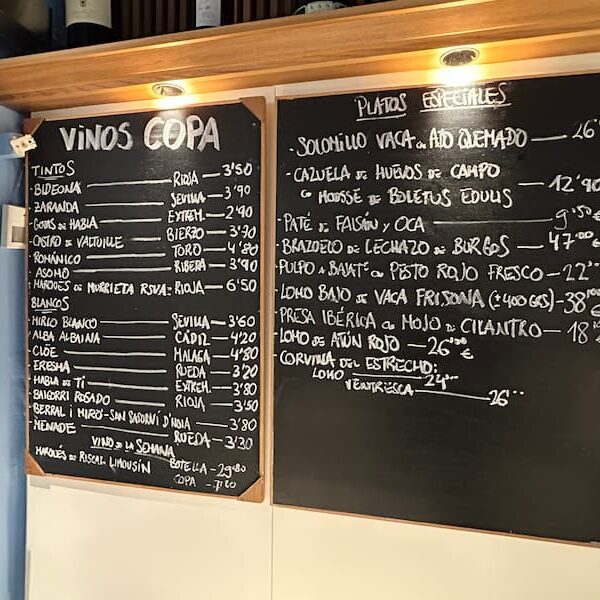 VINOS COPA
TINTOS
- BIDEONA — RIOJA — 3'50
- ZARANDA — SEVILLA — 3'90
- GOTAS DE HABLA — EXTREM. — 2'90
- CASTRO DE VALTUILLE — BIERZO — 3'70
- ROMÁNICO — TORO — 4'80
- ASOMO — RIBERA — 3'90
- MARQUÉS DE MURRIETA RSVA - RIOJA — 6'50
BLANCOS
- MIRLO BLANCO — SEVILLA — 3'60
- ALBA ALBAINA — CÁDIZ — 4'20
- CLÖE — MALAGA — 4'80
- ERESMA — RUEDA — 3'20
- HABLA DE TÍ — EXTREM. — 3'80
- BAIGORRI ROSADO — RIOJA — 3'50
- BERRAL I MIRÓ - SAN SADURNÍ D'NOIA — 3'80
- MENADE — RUEDA — 3'30
VINO DE LA SEMANA
MARQUÉS DE RISCAL LIMOUSÍN BOTELLA - 29'80
COPA - 7'20
PLATOS ESPECIALES
- SOLOMILLO VACA CON AJO QUEMADO — 26
- CAZUELA DE HUEVOS DE CAMPO
CON MOUSSE DE BOLETUS EDULIS — 12'90
- PATÉ DE FAISÁN Y OCA — 9'50 €
- BRAZUELO DE LECHAZO DE BURGOS — 47'00 €
- PULPO A BAJATª CON PESTO ROJO FRESCO — 22'00
- LOMO BAJO DE VACA FRISONA (±400 GRS) — 38'00 €
- PRESA IBÉRICA CON MOJO DE CILANTRO — 18
- LOMO DE ATÚN ROJO — 26'00 €
- CORVINA DEL ESTRECHO:
LOMO — 24'00
VENTRESCA — 26'00